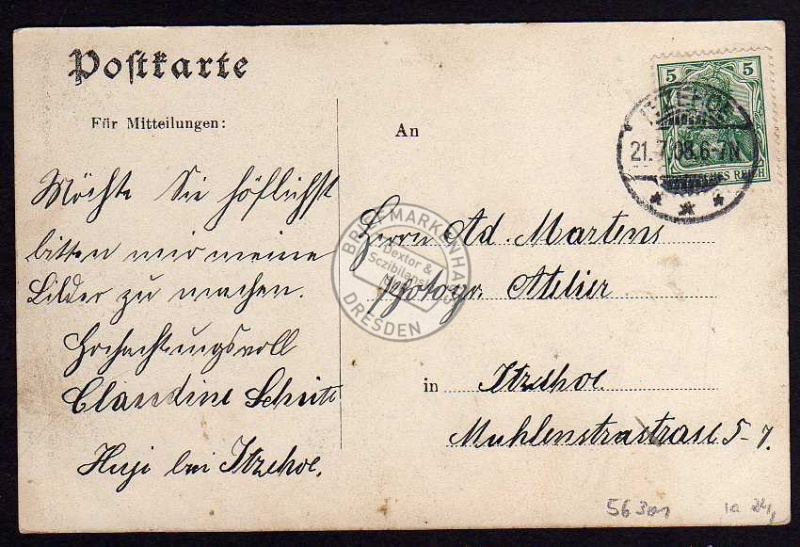 Postkarte
Für Mitteilungen:
Möchte Sie höflichst
bitten mir meine
Bilder zu machen.
Hochachtungsvoll
Claudine Schütt
Huje bei Itzehoe.
An
Herrn Ad. Martens
Photogr. Atelier
in Itzehoe
Muhlenstrastrase 5-7.
5 5
DEUTSCHES REICH
ITZEHOE
21.7.08.6-7N
BRIEFMARKENHAUS
Dextor &
DRESDEN